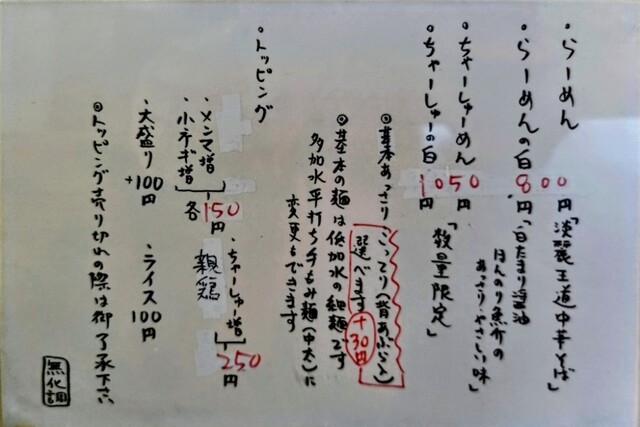 ・らーめん
・らーめんの白
800円
「淡麗王道中華そば」
「白たまり醤油
ほんのり魚介の
あっさりやさしい味」
・ちゃーしゅーめん
・ちゃーしゅーの白
1050円
「数量限定」
◎基本あっさり
こってり(背あぶら)
選べます +30円
◎基本の麺は低加水の細麺です
多加水平打ち手もみ麺(中太)に
変更もできます
・トッピング
・メンマ増
・小ネギ増
各150円
・ちゃーしゅー増
親鶏
250円
・大盛り
+100円
・ライス
100円
◎トッピング売り切れの際は御了承下さい
無化調